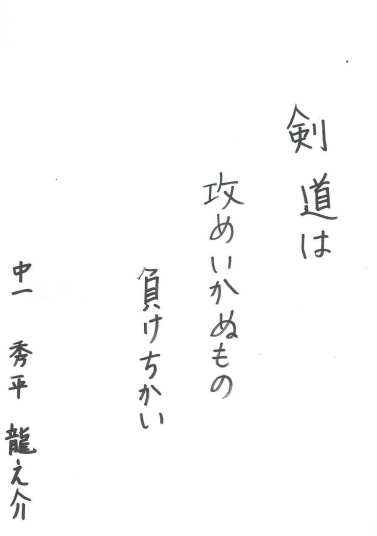 剣道は
攻めいかぬもの
負けちかい
中一 秀平 龍之介